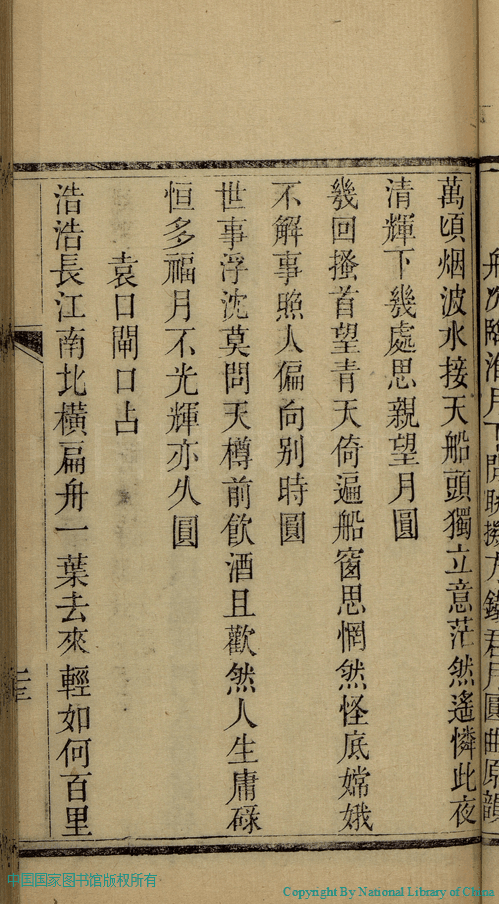 舟次臨淮月下問聯撥方鐵君月圓曲原韻
萬頃烟波水接天船頭獨立意茫然遙憐此夜
清輝下幾處思親望月圓
幾回搔首望青天倚遍船窗思惘然怪底嫦娥
不解事照人偏向别時圓
世事浮沈莫問天樽前飮酒且歡然人生庸碌
恒多福月不光輝亦久圓
袁口閘口占
浩浩長江南北橫扁舟一葉去來輕如何百里
中国国家图书馆版权所有
Copyright By National Library of China